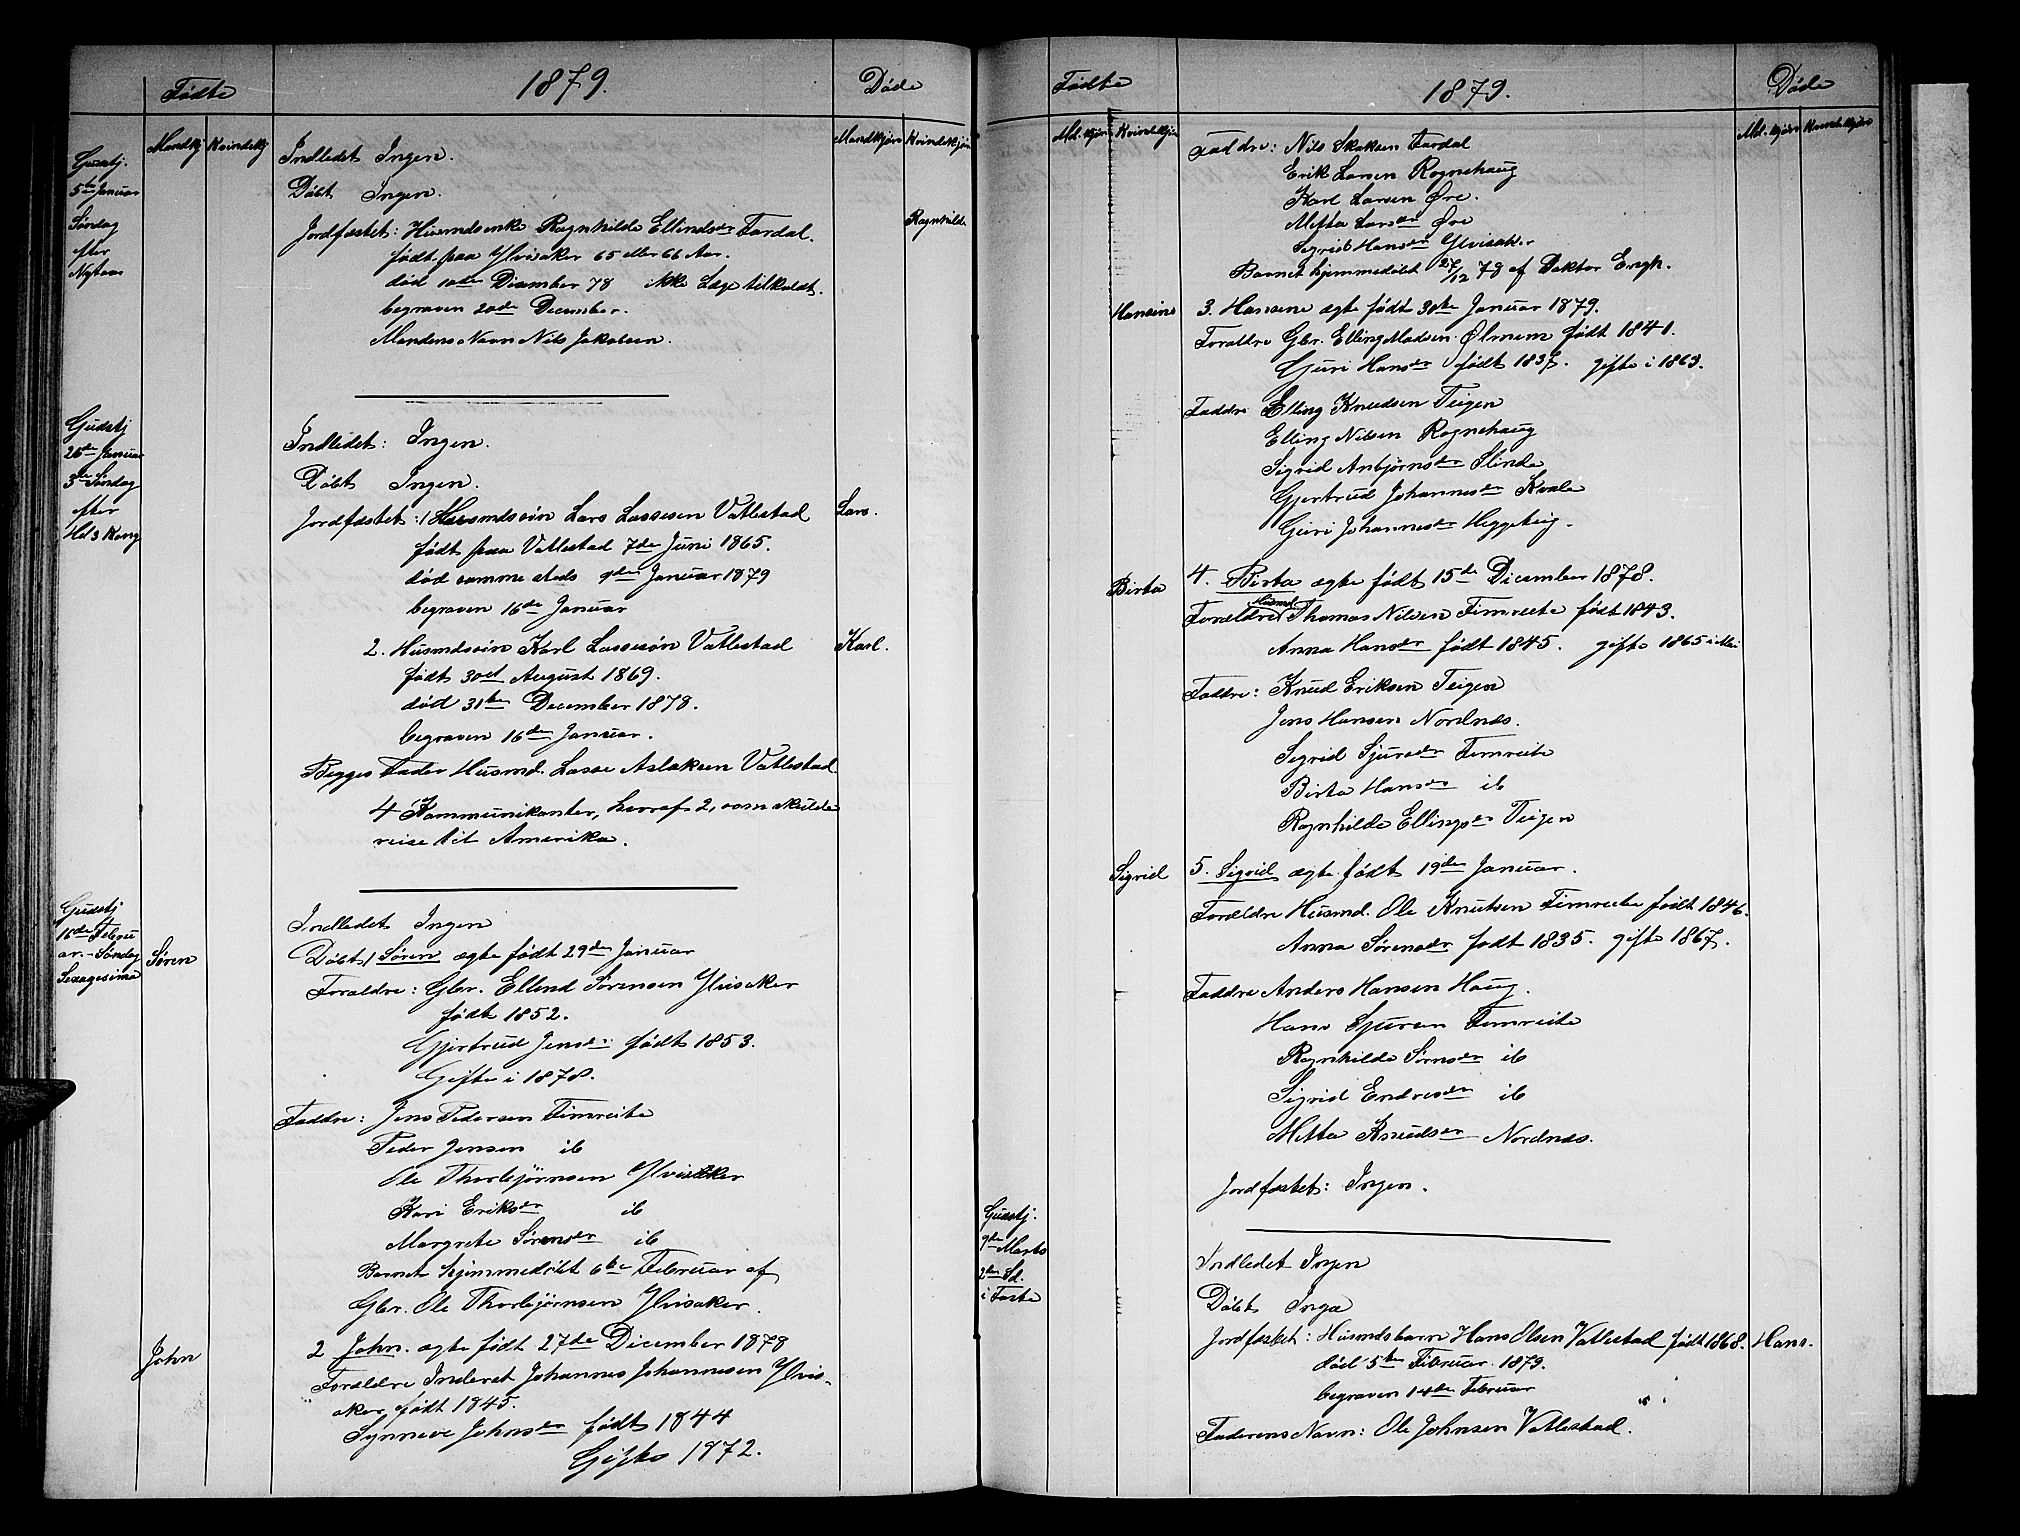 Fødte
1879.
Døde
Mandkj Kvindekj
Mandkjøn Kvindekjøn
Gudstj.
5te Januar
Søndag
efter
Nytaar
Indledet Ingen.
Døbt Ingen.
Jordfæstet: Husmdsenke Ragnhilde Ellendsdr Fardal.
Ragnhilde
født paa Ylvisaker 65 eller 66 Aar.
død 10de Dicember 78 ikke Læge tilkaldt.
begraven 20de December.
Mandens Navn Nils Jakobsen.
Gudstj
26de Januar
3de Søndag
efter
Hl 3 Kong
Indledet: Ingen.
Døbt Ingen.
Jordfæstet: 1 Husmdssøn Lars Lassesen Vatlestad
Lars.
født paa Vatlestad 7de Juni 1865.
død samme steds 9de Januar 1879
begraven 16de Januar
2. Husmdssøn Karl Lassesøn Vatlestad
Karl.
født 30et August 1869.
død 31te December 1878.
begraven 16de Januar.
Begges Fader Husmd. Lasse Aslaksen Vatlestad
4 Kommunikanter, hvoraf 2, som skulde
reise til Amerika.
Gudstj
16de Febru
ar. - Søndag
Sexagesima
Indledet Ingen
Søren
Døbt 1 Søren ægte født 29de Januar
Foraldre: Gbr. Ellend Sørensen Ylvisaker
født 1852.
Gjertrud Jensdr født 1853.
Gifte i 1878.
Faddre: Jens Pedersen Fimreite
Peder Jensen ib
Ole Thorbjørnsen Ylvisaker
Kari Eriksdr ib
Margrete Sørensdr ib
Barnet hjemmedøbt 6te Februar af
Gbr. Ole Thorbjørnsen Ylvisaker.
John
2 John. ægte født 27de Dicember 1878
Foraldre Inderst Johannes Johannesen Ylvis-
aker født 1845.
Synneve Johnsdr født 1844
Gifte 1872.
Fødte
1879.
Døde
Md. kjøn Kvindekjøn
Md. kjøn Kvindekjøn
Faddre: Nils Fardal
Erik Larsen Rognehaug
Karl Larsen Øre.
Metta Larsdr Øre
Sigrid Hansdr Ylvisaker
Barnet hjemmedøbt 27/12 78 af Doktor
Hansine
3. Hansine ægte født 30te Januar 1879.
Foraldre Gbr. Elling Madsen Ølmem født 1841.
Guri Hansdr født 1837. gifte i 1863.
Faddre Elling Knudsen Teigen
Elling Nilsen Rognehaug
Sigrid Anbjørnsdr Slinde
Gjertrud Johannesdr Kvale
Guri Johannesdr Heggeteig.
Birta
4. Birta ægte født 15de Dicember 1878.
Foraldre Husmd Thomas Nilsen Fimreite født 1843.
Anna Hansdr født 1845. gifte 1865 i Mai
Faddre: Knud Eriksen Teigen
Jens Hansen Nordnæs.
Sigrid Sjursdr Fimreite
Birta Hansdr ib
Ragnhilde Ellingsdr Teigen
Sigrid
5. Sigrid ægte født 19de Januar.
Foraldre Husmd. Ole Knutsen Fimreite født 1846.
Anna Sørensdr født 1835. gifte 1867.
Faddre Anders Hansen Haug.
Hans Sjursen Fimreite
Ragnhilde Sørnsdr ib
Sigrid Endresdr ib
Metta Knudsdr Nordnæs.
Jordfæstet: Ingen.
Gudstj.
9de Marts
2den Sd.
i Faste
Indledet Ingen
Døbt Inga
Jordfæstet: Husmdsbarn Hans Olsen Vatlestad født 1868.
Hans.
død 5te Februar 1879.
begraven 14de Februar
Faderens Navn: Ole Johnsen Vatlestad.